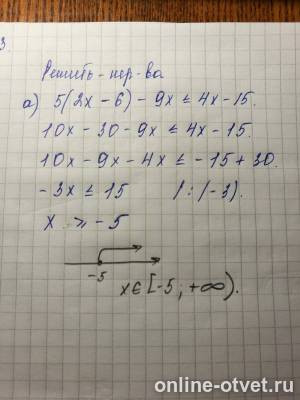 3
Решить нер-ва
а) 5(2x - 6) - 9x ≤ 4x - 15.
10x - 30 - 9x ≤ 4x - 15.
10x - 9x - 4x ≤ -15 + 30.
-3x ≤ 15 /: (-3).
x ≥ -5
-5
x ∈ [-5; +∞).
online-otvet.ru